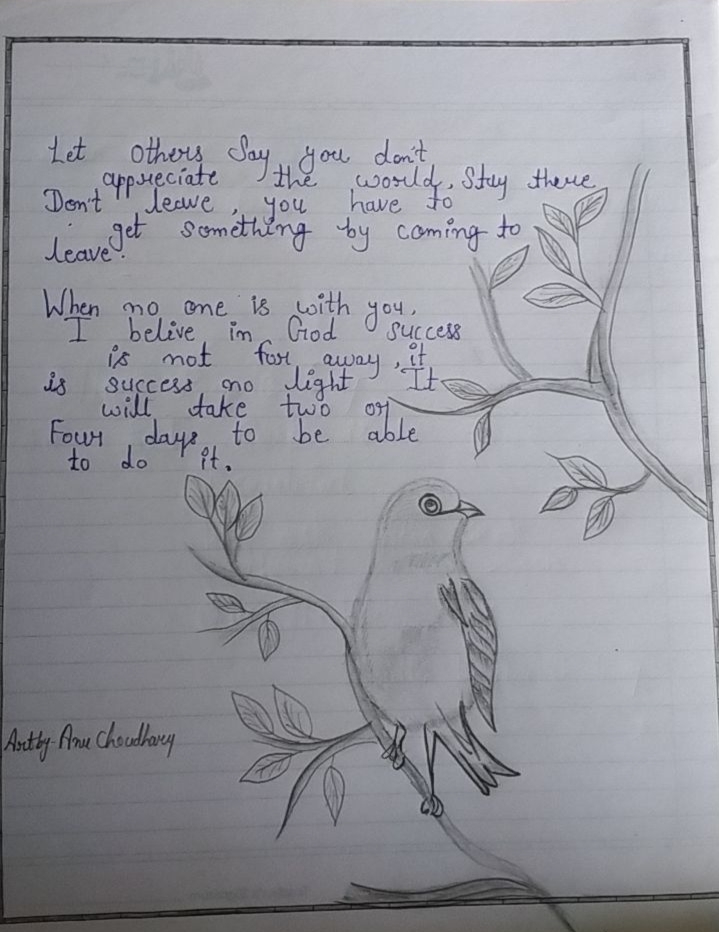 Let others Say you don't
appreciate the world, Stay there
Don't leave, you have to
get something by coming to
leave.
When no one is with you,
I belive in God success
is not for away, it
is success no light It
will take two or
Four days to be able
to do it.
Art by Anu Choudhary